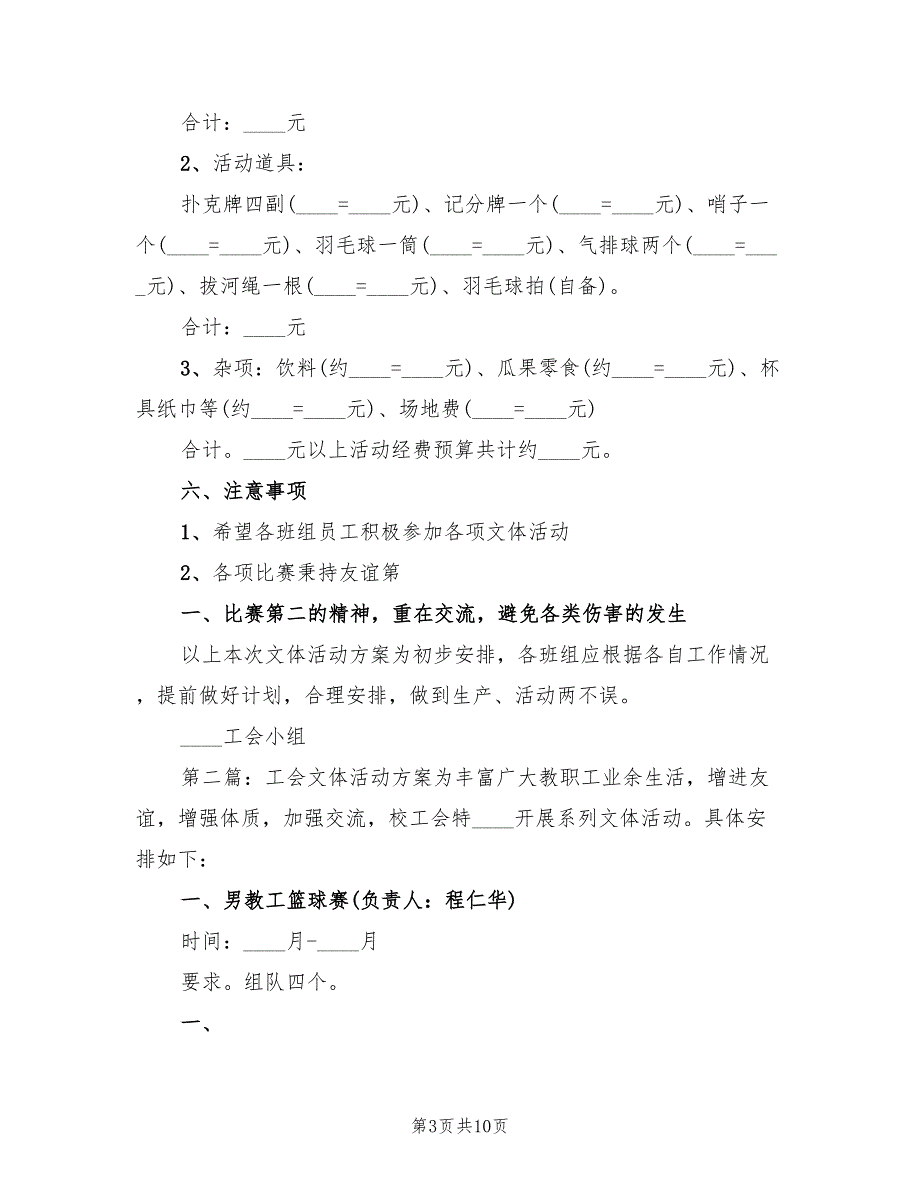 合计：____元
2、活动道具：
扑克牌四副(____=____元)、记分牌一个(____=____元)、哨子一
个(____=____元)、羽毛球一筒(____=____元)、气排球两个(____=___
_元)、拔河绳一根(____=____元)、羽毛球拍(自备)。
合计：____元
3、杂项：饮料(约____=____元)、瓜果零食(约____=____元)、杯
具纸巾等(约____=____元)、场地费(____=____元)
合计。____元以上活动经费预算共计约____元。
六、注意事项
1、希望各班组员工积极参加各项文体活动
2、各项比赛秉持友谊第
一、比赛第二的精神，重在交流，避免各类伤害的发生
以上本次文体活动方案为初步安排，各班组应根据各自工作情况
，提前做好计划，合理安排，做到生产、活动两不误。
____工会小组
第二篇：工会文体活动方案为丰富广大教职工业余生活，增进友
谊，增强体质，加强交流，校工会特____开展系列文体活动。具体安
排如下：
一、男教工篮球赛(负责人：程仁华)
时间：____月-____月
要求。组队四个。
一、
第3页共10页